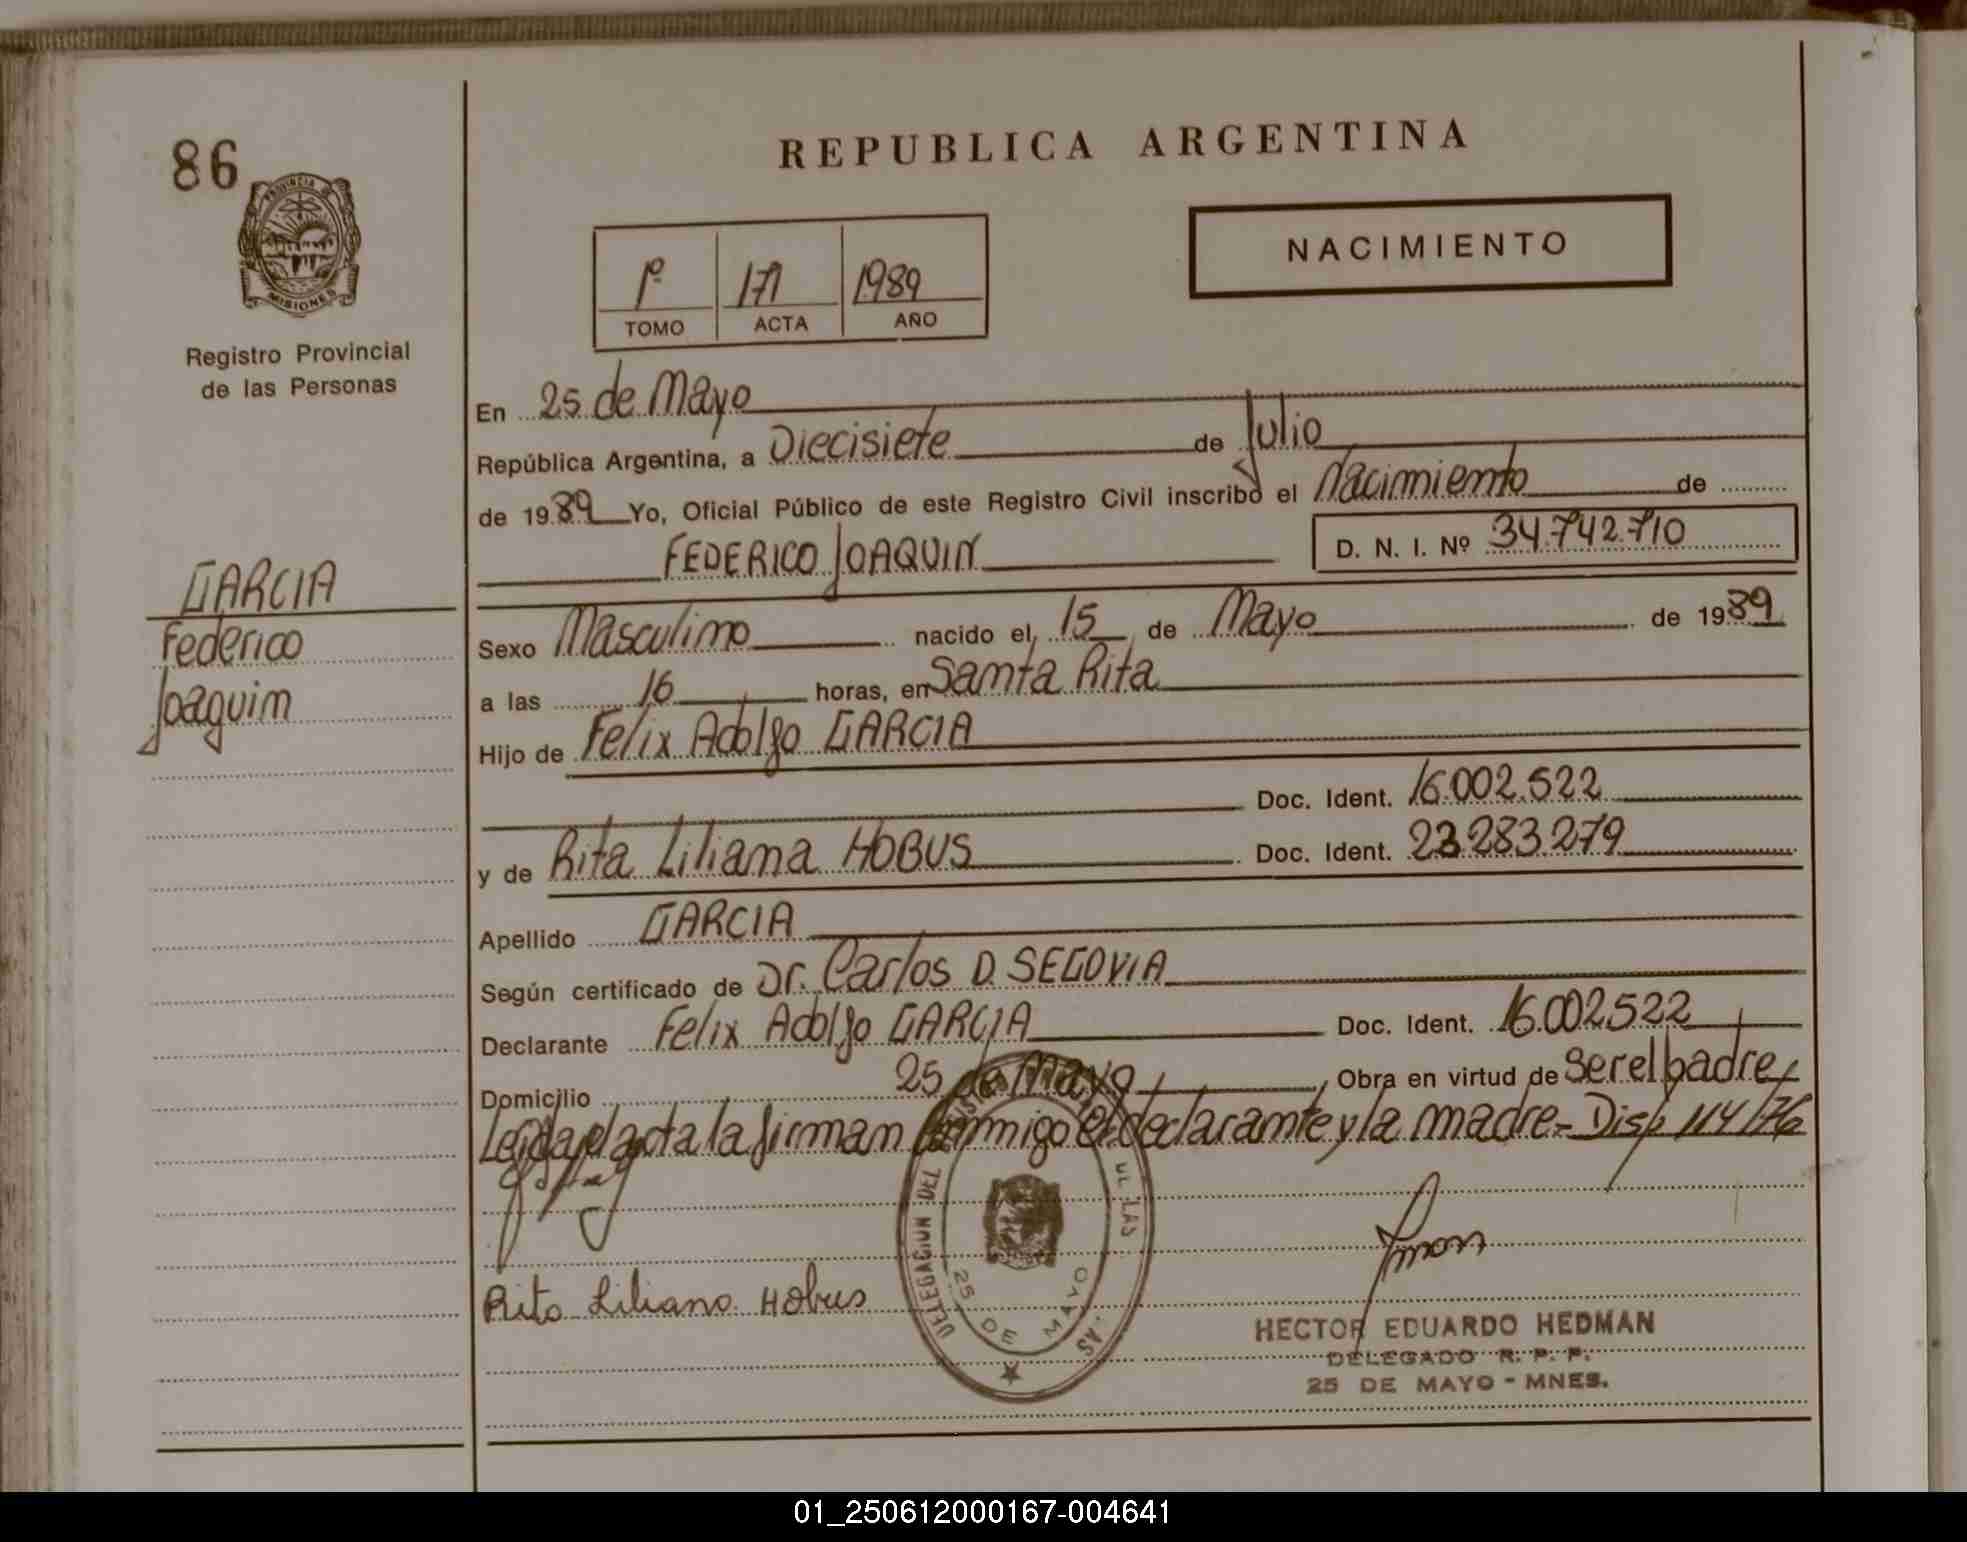 86
PROVINCIA DE
MISIONES
Registro Provincial
de las Personas
GARCIA
Federico
Joaquim
REPUBLICA ARGENTINA
NACIMIENTO
1º 171 1989
TOMO ACTA AÑO
En 25 de Mayo
República Argentina, a Diecisiete de Julio
de 1989 Yo, Oficial Público de este Registro Civil inscribo el Nacimiento de
FEDERICO JOAQUIN D. N. I. Nº 34.742.710
Sexo Masculino nacido el 15 de Mayo de 1989
a las 16 horas, en Santa Rita
Hijo de Felix Adolfo GARCIA
Doc. Ident. 16.002.522
y de Rita Liliana HOBUS Doc. Ident. 23.283.279
Apellido GARCIA
Según certificado de Dr. Carlos D. SEGOVIA
Declarante Felix Adolfo GARCIA Doc. Ident. 16.002522
Domicilio 25 de Mayo, Obra en virtud de ser el padre
Leida el acta la firman conmigo el declarante y la madre.- Disp. 114/76
Rita Liliana Hobus
DELEGACION DEL DE LAS
25 DE MAYO
HECTOR EDUARDO HEDMAN
DELEGADO R. P. P.
25 DE MAYO - MNES.
01_250612000167-004641